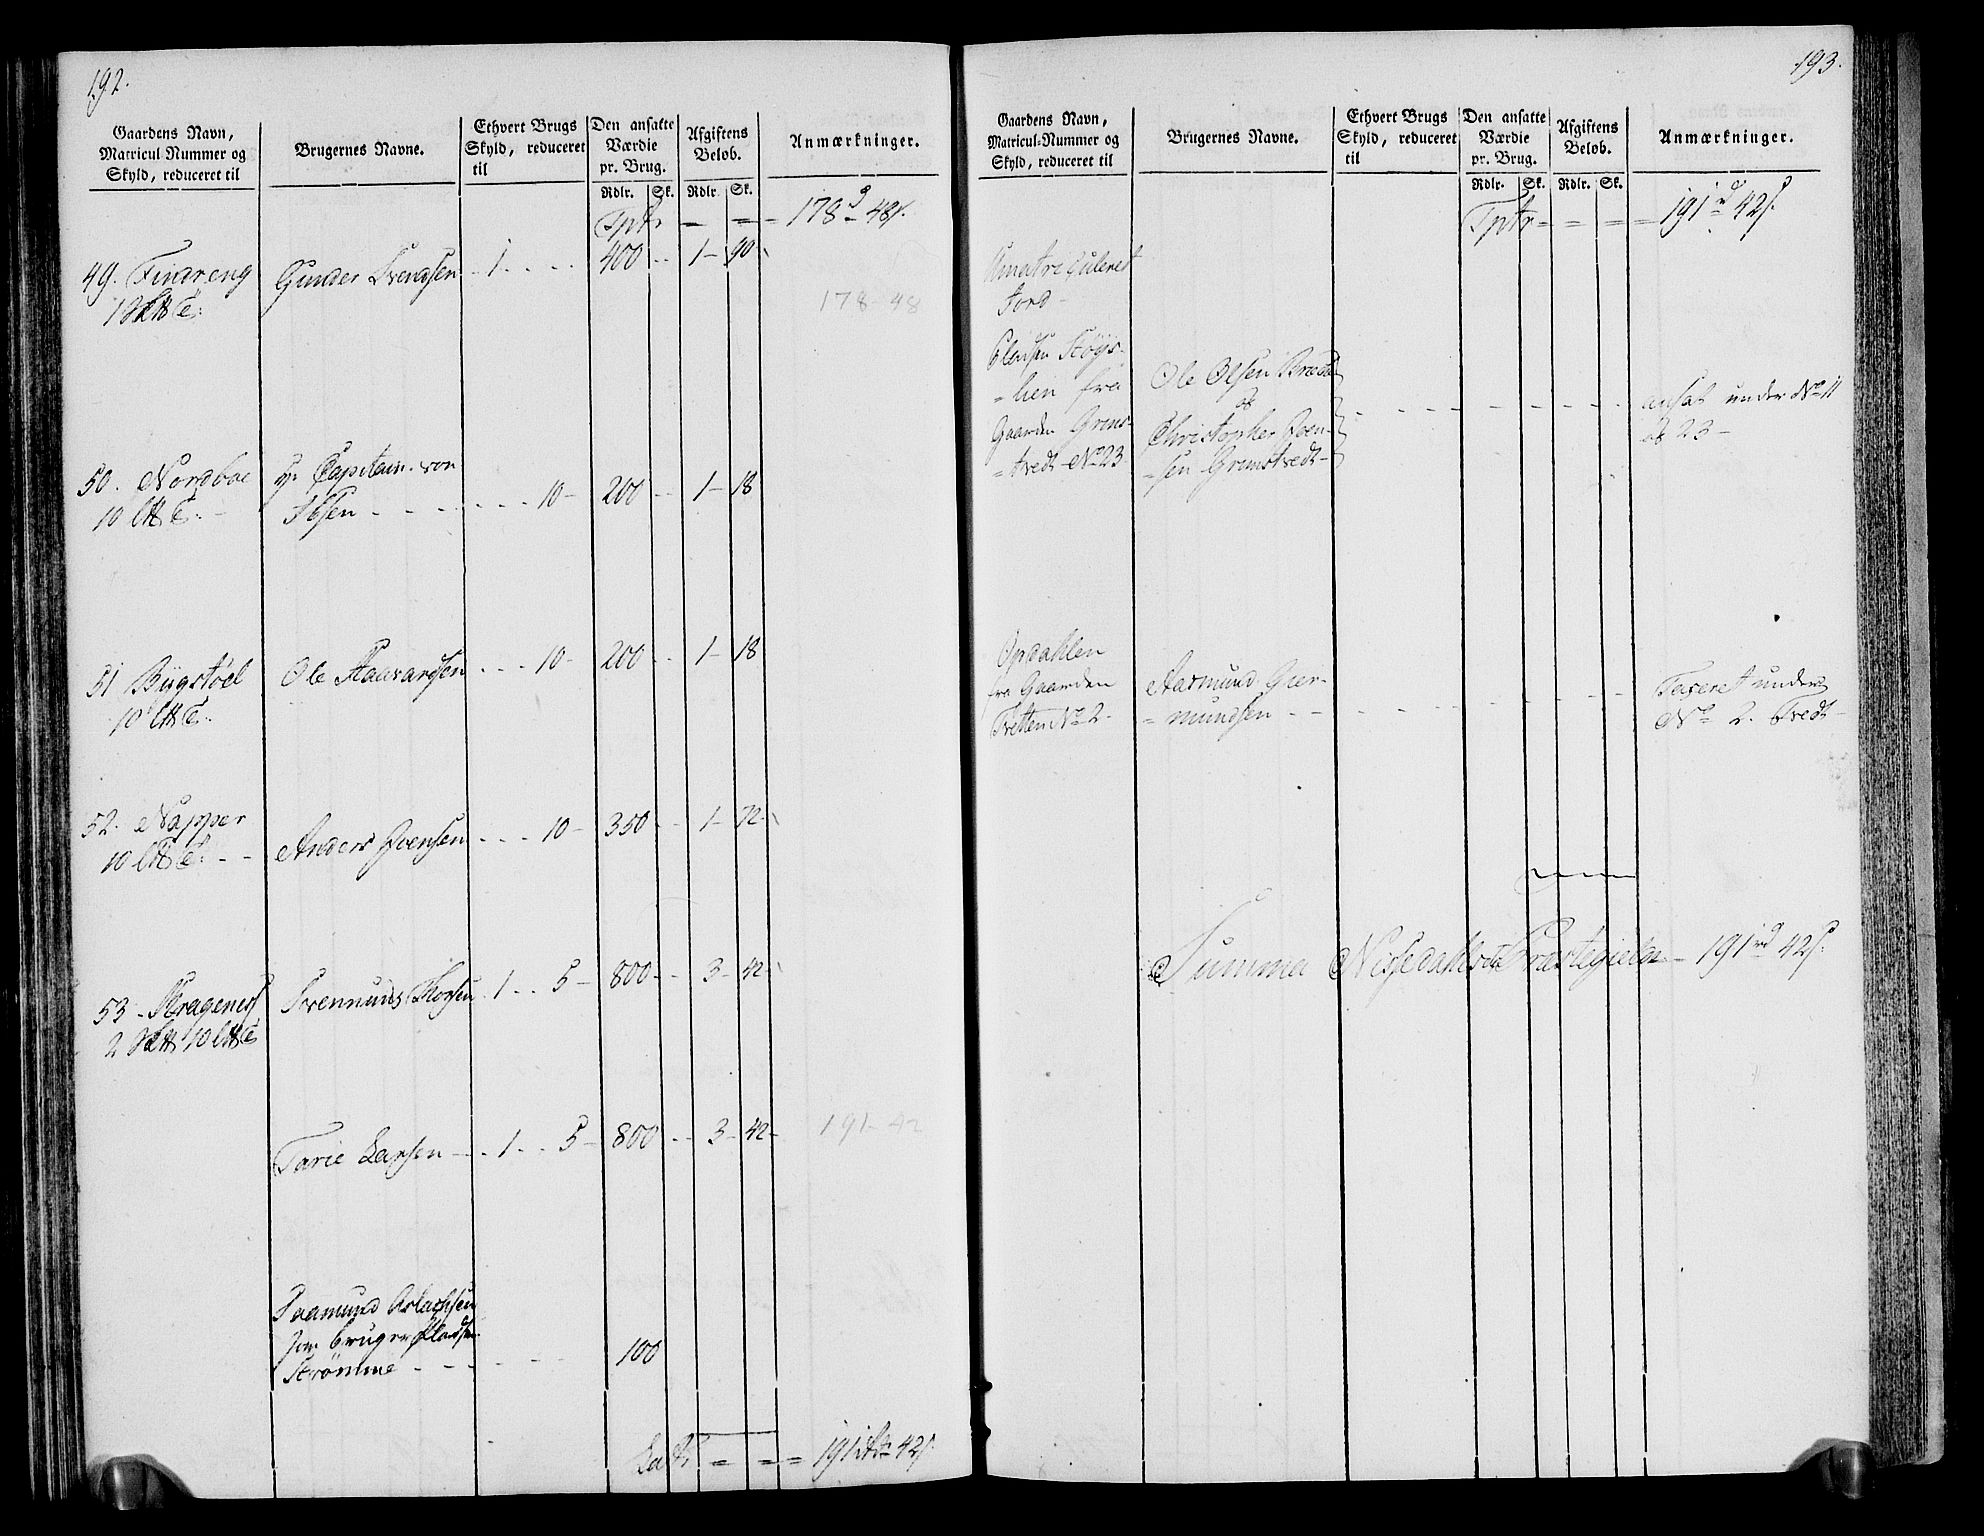 192.
Gaardens Navn,
Matricul-Nummer og
Skyld, reduceret til
Brugernes Navne.
Ethvert Brugs
Skyld, reduceret
til
Den ansatte
Værdie
pr. Brug.
Rdlr. Sk.
Afgiftens
Beløb.
Rdlr. Sk.
Anmærkninger.
Tptr - = = 178 - 48
49. Finareng Gunder Svendsen - 1 - - - 400 - - 1 - 90
178 - 48
50. Nordboe Capitain von
10 Ibsen - - - - - - 10 - 200 - - 1 - 18
51 Bügstøel Ole Haavarsen - - - 10 - 200 - - 1 - 18
10
52. Napper
10 Anders Joensen - - - 10 - 350 - - 1 - 72
53 - Kragenes Svennund Thorsen 1 - - 5 - 800 - - 3 - 42
2 10
Tarie Larsen - - 1 - - 5 - 800 - - 3 - 42 - 191 - 42
Aamund Aslachsen
som bruger Pladsen
Strømme - - - - - - 100
Lat = = = 191 42
193.
Gaardens Navn,
Matricul-Nummer og
Skyld, reduceret til
Brugernes Navne.
Ethvert Brugs
Skyld, reduceret
til
Den ansatte
Værdie
pr. Brug.
Rdlr. Sk.
Afgiftens
Beløb.
Rdlr. Sk.
Anmærkninger.
Tptr = = = = 191 42
Umatriculeret
Jord -
Pladsen Høgs-
= lien fra
Gaarden Grims-
= tvedt No 23
Ole Olsen
og
Christopher Joen-
= sen Grimstvedt -
ansat under No 11
og 23 -
Opdahlen
fra Gaarden
Tvetten No 2.
Aasmund Gier-
= mundsen - - - - - - - -
Taxeret under
No 2. Tvedt
Summa Nissedahls Præstegield - 191 rd 42